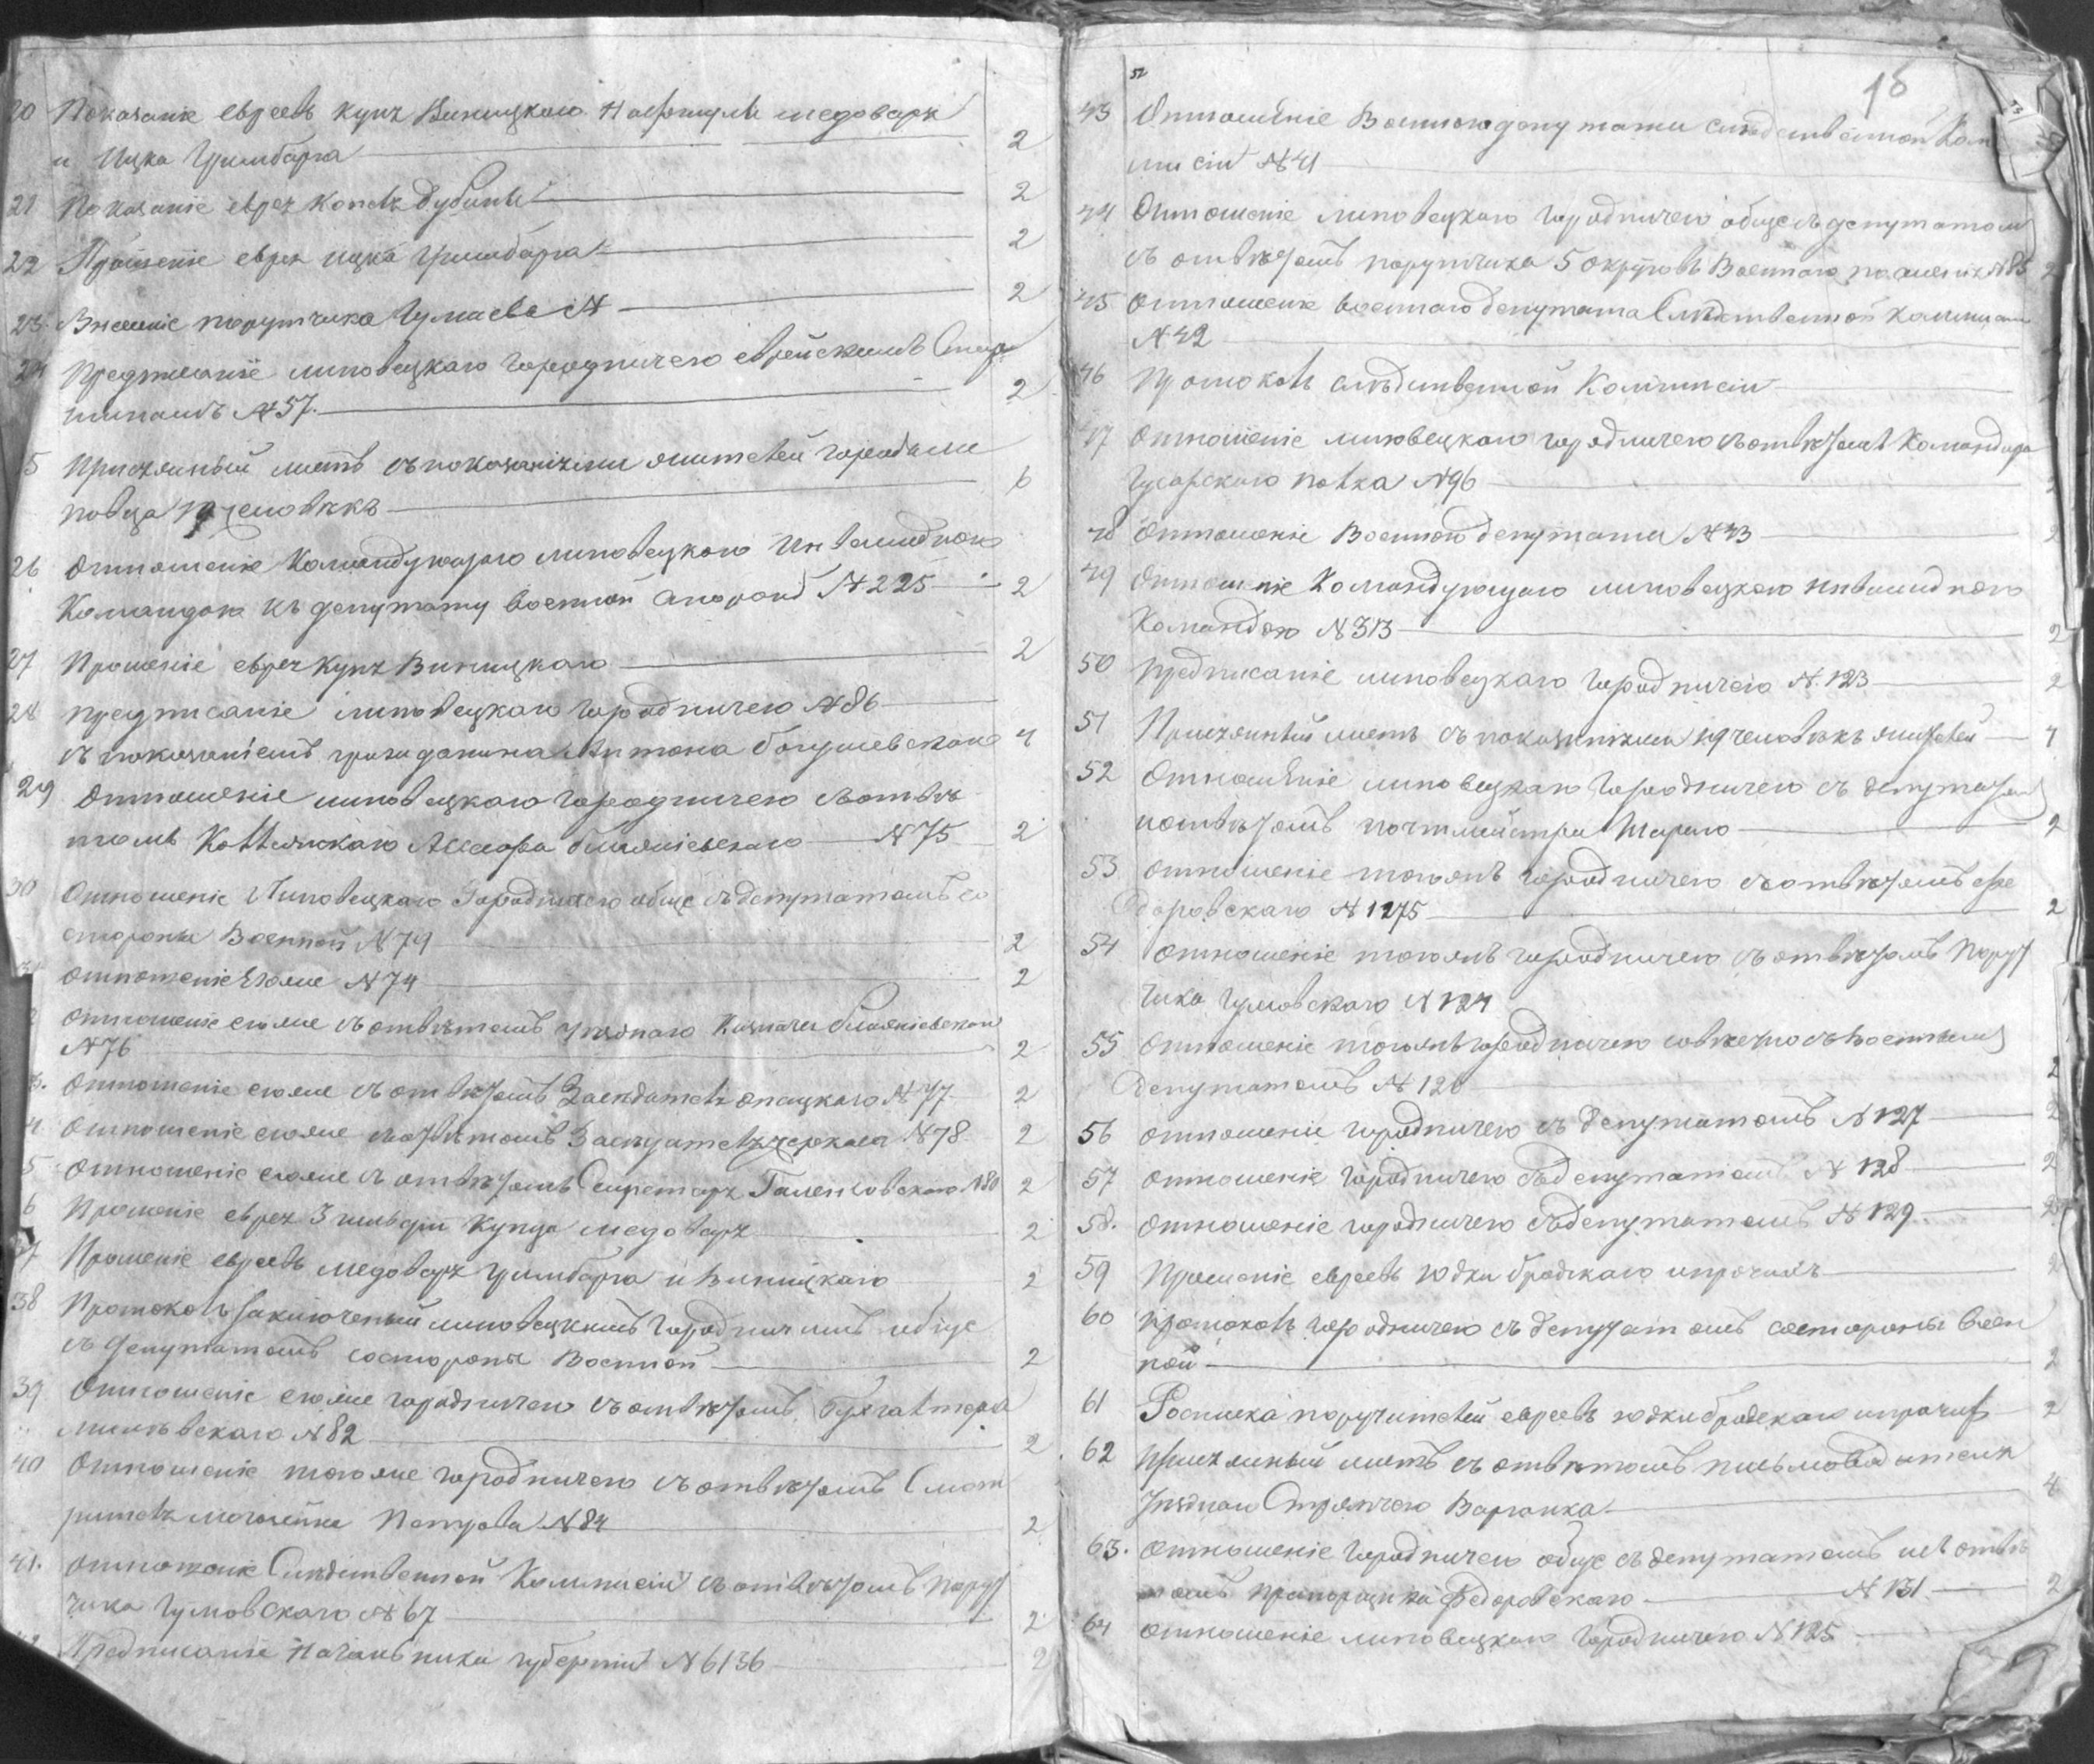 20 Показаніе евреевъ Купъ Виницкаго Нафтули медоваря 2
и Ицка Гринбарга
21 Показаніе еврея Копеля Дубины 2
22 Прошеніе еврея ицка Гринбарга 2
23. поручика 2
24 Предписаніе липовецкаго городничего еврейскимъ Стар
шинамъ №57. 2
5 Присяжный листъ съ показаніями жителей города ли
повца человѣкъ 6
26 Отношеніе Командующаго липовецкою Инвалидною
Командою къ депутату военной стороны №225 2
27 Прошеніе еврея Купъ Виницкаго 2
28 предписаніе липовецкаго городничего №86
съ показаніемъ гражданина Антона 4
29 Отношеніе липовецкаго городничего съ отвѣ
томъ Асесора №75 2
30 Отношеніе Липовецкаго Городничего обще съ депутатомъ со
стороны Военной №79 2
отношеніе его же №74 2
отношеніе его же съ отвѣтомъ уѣзднаго Казначея
№76 2
3. Отношеніе его же съ отвѣтомъ Засѣдателя опацкаго №77 2
4 Отношеніе его же съ отвѣтомъ Засѣдателя черкаса №78. 2
5 Отношеніе его же съ отвѣтомъ Секретаря 2
6 Прошеніе еврея 3 гильдіи Купца медоваря 2
37 Прошеніе евреевъ медоваря Гринбарга и Виницкаго 2
38 Протоколъ заключенный липовецкимъ городничимъ обще
съ депутатомъ со стороны Военной 2
39 Отношеніе его же городничего съ отвѣтомъ Бухгалтера
№82 2
40 Отношеніе того же городничего съ отвѣтомъ Смот
рителя магазейна Петрова №84 2
41. отношеніе Слѣдственной Коммисіи съ отвѣтомъ Пору
чика Гумовскаго №67 2
Предписаніе Начальника губерніи №6136 2
43 Отношеніе Военного депутата слѣдственной Ком
мисіи №41
44 Отношеніе липовецкаго городничего обще съ депутатомъ
съ отвѣтомъ поручика 5 округовъ Военнаго поселенія №85 2
45 отношеніе военнаго депутата Слѣдственной Коммисіи
№42
46 Протоколъ слѣдственной Коммисіи
47 Отношеніе липовецкаго городничего съ отвѣтомъ Командира
Гусарскаго полка №96
48 отношеніе Военного депутата №43 2
49 Отношеніе Командующаго липовецкою инвалидною
Командою №313 2
50 предписаніе липовецкаго городничего №123 2
51 Присяжный листъ съ показаніями 19 человѣкъ жителей 4
52 Отношеніе липовецкаго городничего съ депутатомъ
и отвѣтомъ почтмейстра 2
53 отношеніе того жъ городничего съ отвѣтомъ Фе
доровскаго №1275 2
54 отношеніе того жъ городничего съ отвѣтомъ Пору
чика Гумовскаго №124
55 Отношеніе того жъ городничего совмѣстно съ Военнымъ
Депутатомъ 2
56 отношеніе городничего съ депутатомъ №127 2
57 отношеніе городничего съ депутатомъ №128 2
58. отношеніе городничего съ депутатомъ №129 2
59 Прошеніе евреевъ Юдки бродскаго и прочихъ 2
60 Протоколъ городничего съ депутатомъ со стороны Воен
ной 2
61 Росписка поручителей евреевъ Юдки бродскаго и прочих 2
62 присяжный листъ съ отвѣтомъ письмоводителя
Уѣзднаго Стряпчего 4
63. отношеніе городничего обще съ депутатомъ и съ отвѣ
томъ прапорщика Федоровскаго №131. 2
64 отношеніе липовецкаго городничего №125